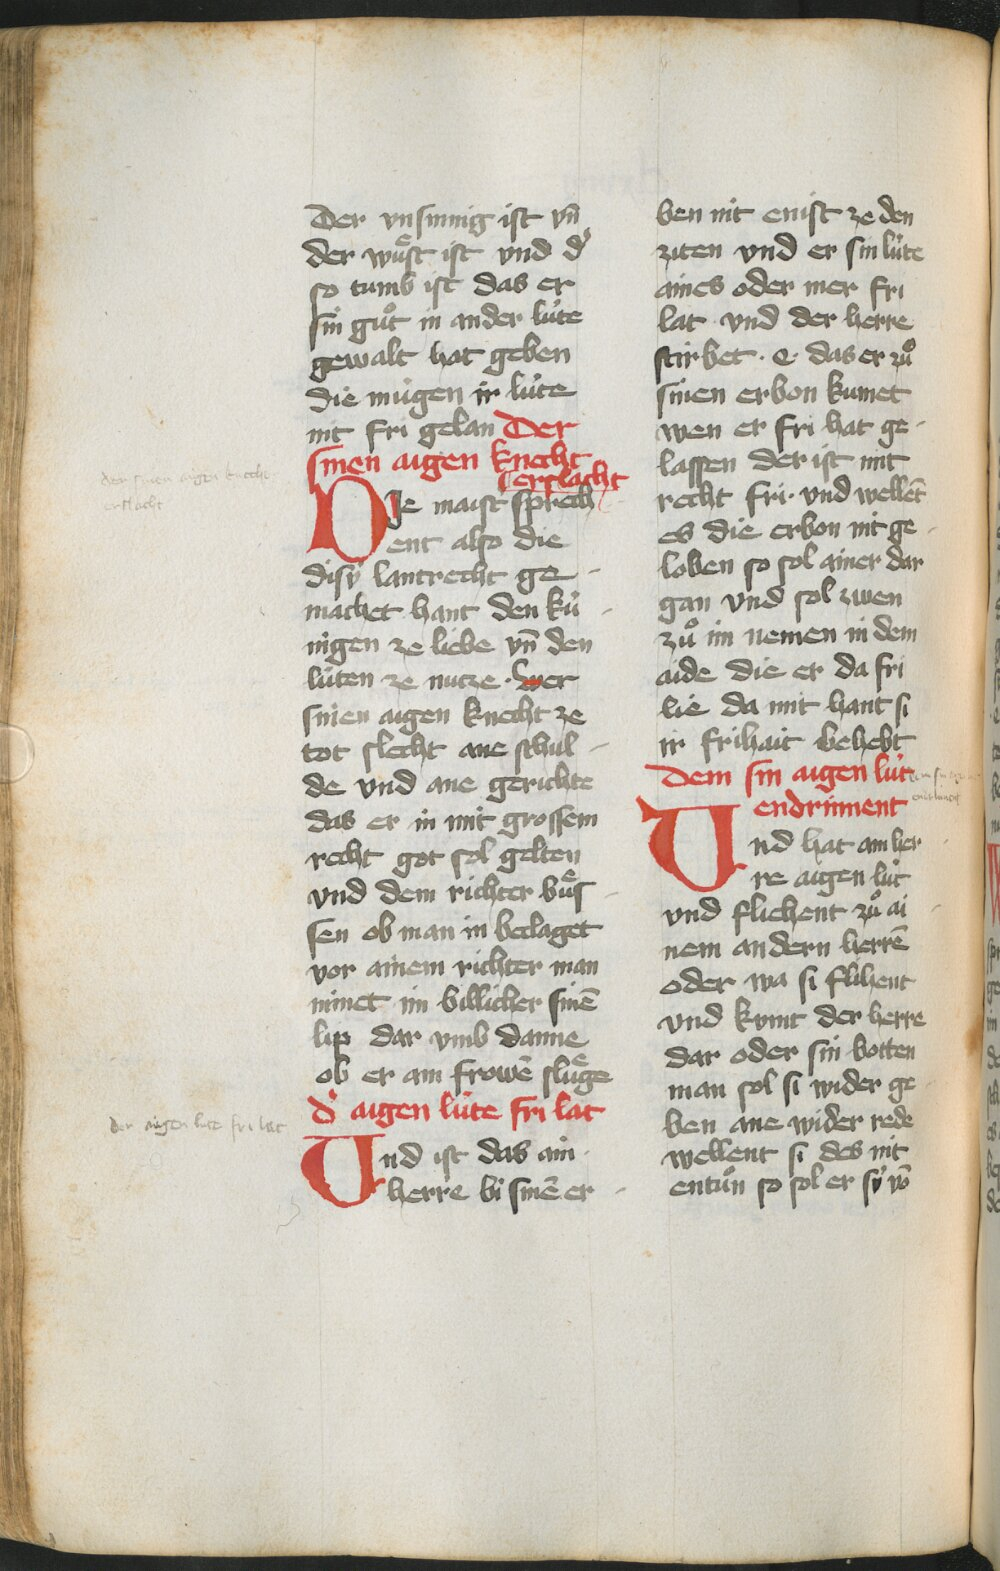 Der vnsinnig ist vn̄
der wuͤst ist vnd d'
so tumb ist das er
sin guͦt in ander lúte
gewalt hat geben
die mugen ir lúte
nit fri gelan Der
sinen aigen knecht
erslacht
Die maist sprech
ent also die
disy lantrecht ge
machet hant den kú
nigen ze liebe vn̄ den
lúten ze nutze · wer
sinen aigen knecht ze
tot slecht ane schul
de vnd ane gerichte
das er in mit grossem
recht got sol gelten
vnd dem richter buͤs
sen ob man in beclaget
vor ainem richter man
nimet im billicher sinē
lip dar vmb danne
ob er ain frowē sluͤge
d' aigen lúte fri lat
Vnd ist das ain
herre bi sinē er
ben nit enist ze den
ziten vnd er sin lúte
aines oder mer fri
lat vnd der herre
stirbet · e · das er zuͦ
sinen erbon kumet
wen er fri hat ge
lassen der ist mit
recht fri · vnd wellēt
es die erbon nit ge
loben so sol ainer dar
gan vnd sol zwen
zuͦ im nemen in dem
aide die er da fri
lie da mit hant si
ir frihait behebt
Dem sin aigen lút
endrinnent
Vnd hat ain her
re aigen lút
vnd fliehent zuͦ ai
nem andern herrē
oder wa si flihent
vnd kumt der herre
dar oder sin botten
man sol si wider ge
ben ane wider rede
wellent si des nit
entuͦn so sol er sy vō
der sinen aigen knecht
erslacht
der aigen lute fri lat